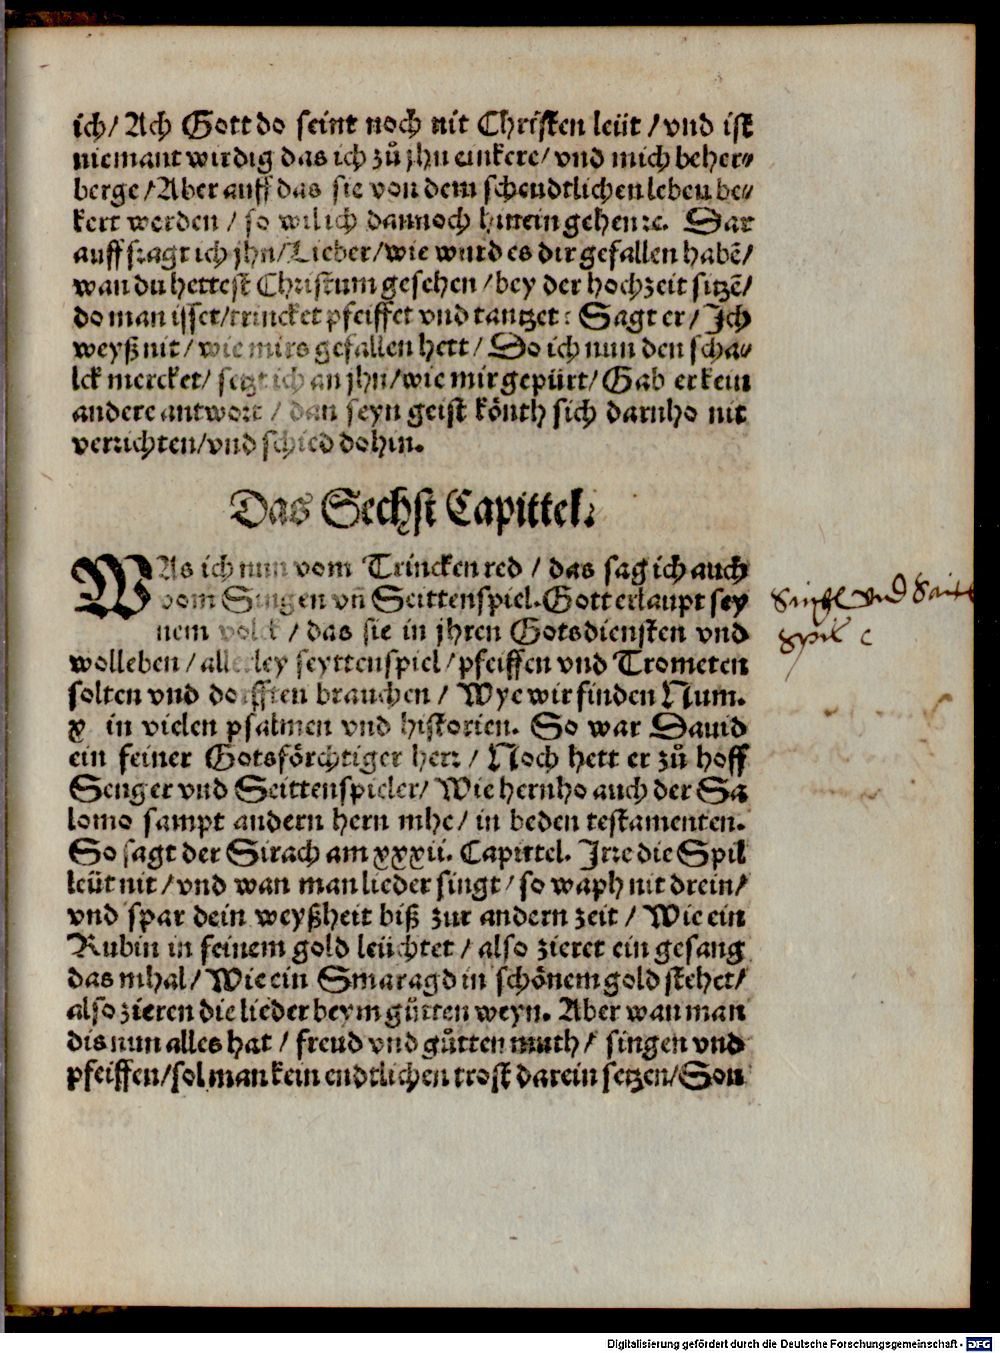 ich/ Ach Gott do seint noch nit Christen leüt / vnd ist
niemant wirdig das ich zů jhn einkere/ vnd mich beher⸗
berge / Aber auff das sie von dem schendtlichen leben be⸗
kert werden / so wil ich dannoch hinein gehen ꝛc. Dar
auff fragt ich jhn/ Lieber/ wie wurd es dir gefallen habẽ/
wan du hettest Christum gesehen / bey der hochzeit sitzẽ/
do man isset/ trincket pfeiffet vnd tantzet: Sagt er/ Ich
weyß nit / wie mirs gefallen hett / Do ich nun den scha⸗
lck mercket/ setzt ich an jhn/ wie mir gepürt/ Gab er kein
andere antwort / dan seyn geist könth sich darnho nit
verrichten/ vnd schied dohin.
Das Sechst Capittel.
WAs ich nun vom Trincken red / das sag ich auch
vom Singen vñ Seittenspiel. Gott erlaupt sey
nem volck / das sie in jhren Gotsdiensten vnd
wolleben / allerley seyttenspiel / pfeiffen vnd Trometen
solten vnd dorfften brauchen / Wye wir finden Num.
x in vielen psalmen vnd historien. So war Dauid
ein feiner Gotsförchtiger herr / Noch hett er zů hoff
Senger vnd Seittenspieler/ Wie hernho auch der Sa
lomo sampt andern hern mhe/ in beden testamenten.
So sagt der Sirach am xxxii. Capittel. Irre die Spil
leüt nit / vnd wan man lieder singt / so waph nit drein/
vnd spar dein weyßheit biß zur andern zeit / Wie ein
Rubin in feinem gold leüchtet / also zieret ein gesang
das mhal/ Wie ein Smaragd in schönem gold stehet/
also zieren die lieder beym gůtten weyn. Aber wan man
dis nun alles hat / freud vnd gůtten muth / singen vnd
pfeiffen/ sol man kein endtlichen trost darein setzen/ Son
vnd Sait
spil
Digitalisierung gefördert durch die Deutsche Forschungsgemeinschaft - DFG